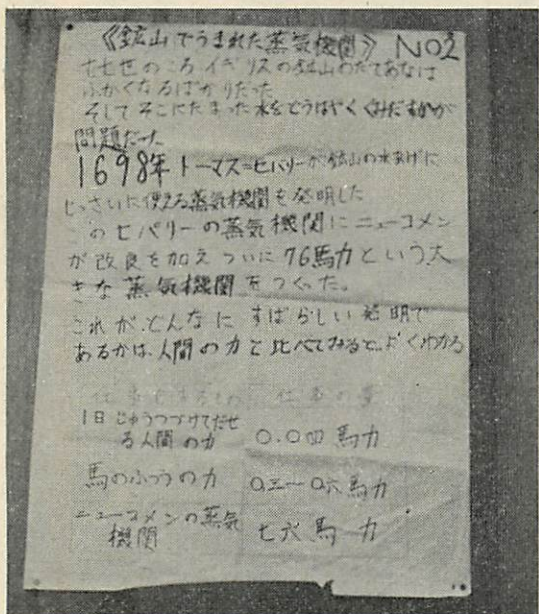 《鉱山でうまれた蒸気機関》 NO2
七七世のころ イギリスの鉱山のたてあなは
ふかくなるばかりだった
そして そこにたまった水をどうはやくくみだすかが
問題だった
1698年 トーマス=セバリーが鉱山の水あげに
じっさいに使える蒸気機関を発明した
このセバリーの蒸気機関にニューコメン
が改良を加え ついに76馬力という大
きな蒸気機関をつくった。
これが、どんなに すばらしい発明で
あるかは、人間の力と比べてみると、よくわかる
仕事をするもの 仕事の量
1日じゅうつづけてだせ
る人間の力 0.0四馬力
馬のふつうの力 0.三〜0.六馬力
ニューコメンの蒸気
機関 七六馬力